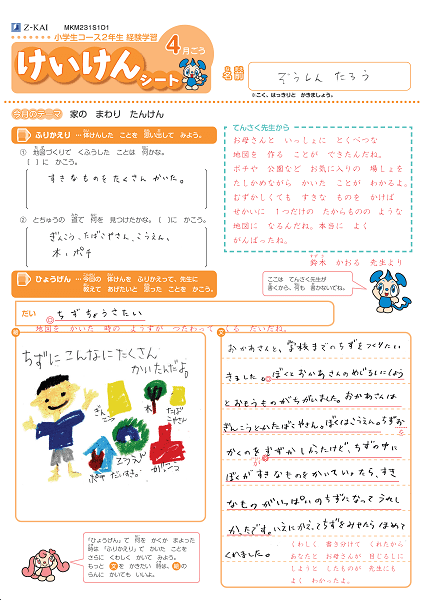 Z-KAI MKM231S1O1
小学生コース2年生 経験学習
けいけんシート
4月ごう
名前
ぞうしん たろう
※こく、はっきりと かきましょう。
今月のテーマ 家の まわり たんけん
ふりかえり …体けんした ことを 思い出して みよう。
① 地図づくりで くふうした ことは 何かな。
( )に かこう。
すきなものをたくさん かいた。
② とちゅうの 道で 何を 見つけたかな。( )に かこう。
ぎんこう、たばこやさん、こうえん、
木、ポチ
てんさく先生から
お母さんと いっしょに とくべつな
地図を 作る ことが できたんだね。
ポチや 公園など お気に入りの 場しょを
たしかめながら かいた ことが わかるよ。
むずかしくても すきな ものを かけば
せかいに 1つだけの たからものの ような
地図に なるんだね。本当に よく
がんばったね。
鈴木 かおる 先生より
ひょうげん …今回の 体けんを ふりかえって、先生に
教えて あげたいと 思った ことを かこう。
ここは てんさく先生が
書くから、何も 書かないでね。
だい
ちずちょうさたい
地図を かいた 時の ようすが つたわって くる だいだね。
絵
ちずに こんなにたくさん
かいたんだよ。
ぎんこう
木
たばこやさん
こうえん
ポチ
だいすき。
文
おかあさんと、学校までのちずをつくりたい
きました。ぼくとおかあさんのめじるしにしよう
とおもうものがちがいました。おかあさんは
ぎんこうとかたばこやさん。ぼくはこうえん。ちずを
かくのをむずかしかったけど、ちずの中に
ぼくがすきなものをかいていったら、すき
なものがいっぱいのちずになってうれし
かったです。いえにかえってちずをみせたらほめて
くれました。
くわしく 書き分けて くれたから
あなたと お母さんが 目じるしに
しようと したものが 先生にも
よく わかったよ。
「ひょうげん」で 何を かくか まよった
時は 「ふりかえり」で かいた ことを
さらに くわしく かいて みよう。
もっと 文を かきたい 時は、絵の
らんに かいても いいよ。